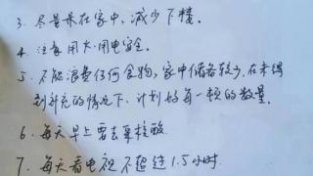 3. 尽量呆在家中, 减少下楼.
4. 注意用火. 用电安全.
5. 不能浪费任何食物, 家中储备较少, 在未得
到补充的情况下, 计划好每一顿的数量.
6. 每天早上要去来检酸
7. 每天看电视不超过1.5小时.